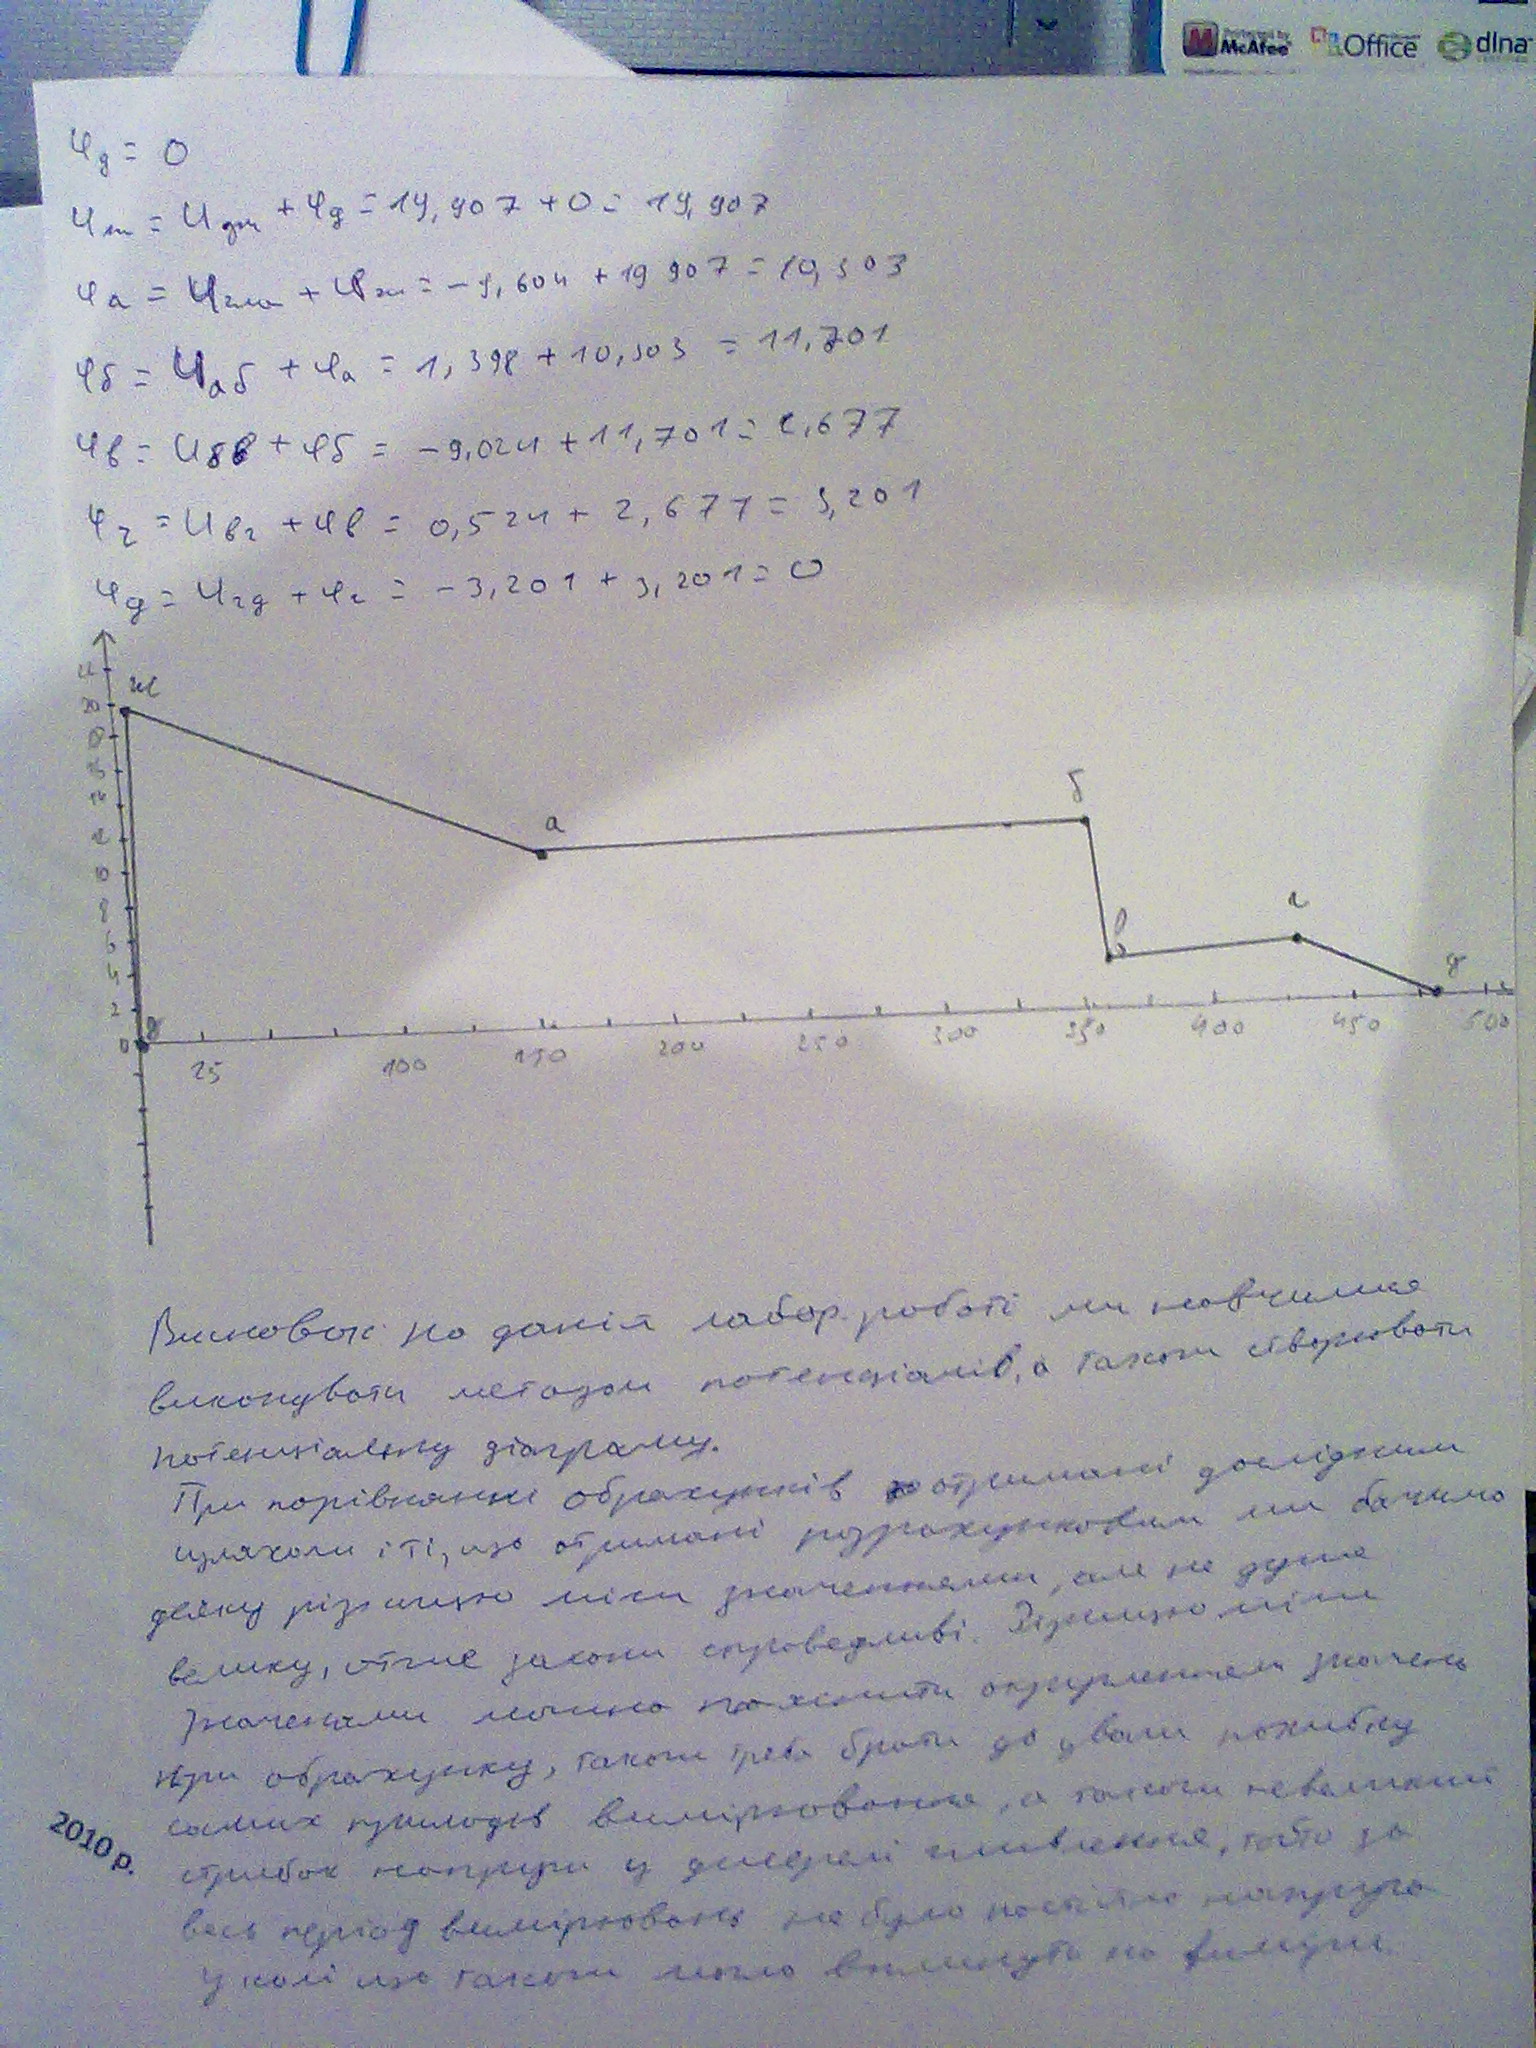 Protected by
McAfee Office dlna
φд = 0
φж = Uдж + φд = 19,907 + 0 = 19,907
φа = Uжа + φж = -9,604 + 19 907 = 10,303
φб = Uаб + φа = 1,398 + 10,303 = 11,701
φв = Uбв + φб = -9,024 + 11,701 = 2,677
φг = Uвг + φв = 0,524 + 2,677 = 3,201
φд = Uгд + φг = -3,201 + 3,201 = 0
ж
20
18
16
14
12
10
8
6
4
2
0
а
б
в
г
д
д
25 100 150 200 250 300 350 400 450 500
Висновок: на даній лабор. роботі ми навчилися
виконувати методом потенціалів, а також створювати
потенціальну діаграму.
При порівнянні обрахунків отримані дослідним
шляхом і ті, що отримані розрахунковим ми бачимо
деяку різницю між значеннями, але не дуже
велику, отже закони справедливі. Різницю між
значенями можна пояснити округленням значень
при обрахунку, також треба брати до уваги похибку
самих приладів вимірювання, а також невеликий
стрибок напруги у джерелі живлення, тобто за
весь період вимірювань не було постійно напруга
у колі що також могло вплинути на
2010 р.